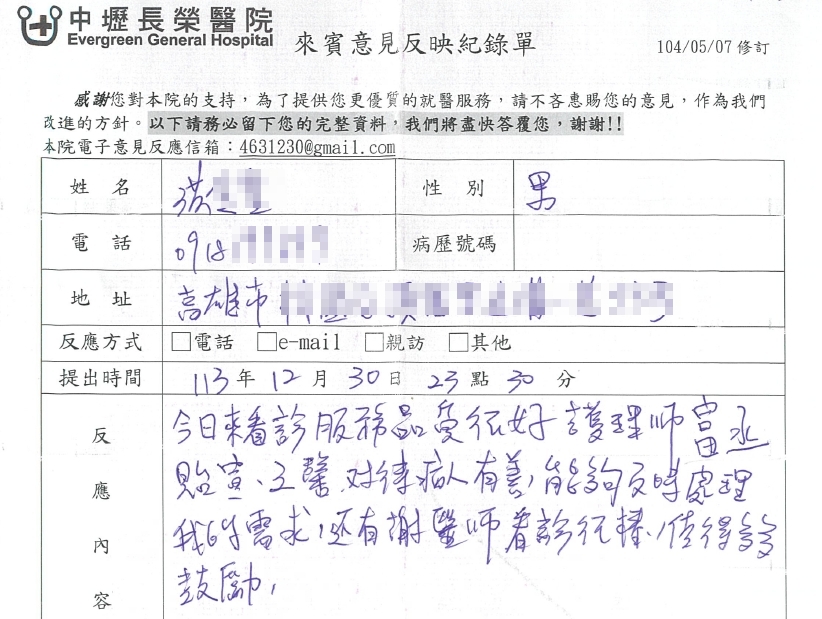 中壢長榮醫院
Evergreen General Hospital
來賓意見反映紀錄單
104/05/07 修訂
感謝您對本院的支持，為了提供您更優質的就醫服務，請不吝惠賜您的意見，作為我們
改進的方針。以下請務必留下您的完整資料，我們將盡快答覆您，謝謝!!
本院電子意見反應信箱：4631230@gmail.com
姓 名 洪 性 別 男
電 話 0918 病歷號碼
地 址 高雄市 號
反應方式 □電話 □e-mail □親訪 □其他
提出時間 113 年 12 月 30 日 23 點 30 分
反應內容
今日來看診服務品質很好 護理師 富丞
貽宣、工馨 对待病人有善,能夠及時處理
我的需求,还有謝醫师看診很棒、值得多多
鼓勵,